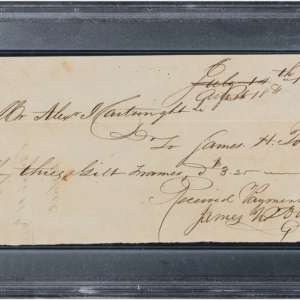 July 14th
August 18th
Mr Alexr J Cartwright
Dr To James H.
Three Gilt Frames, $3.25
Received Payment
James H